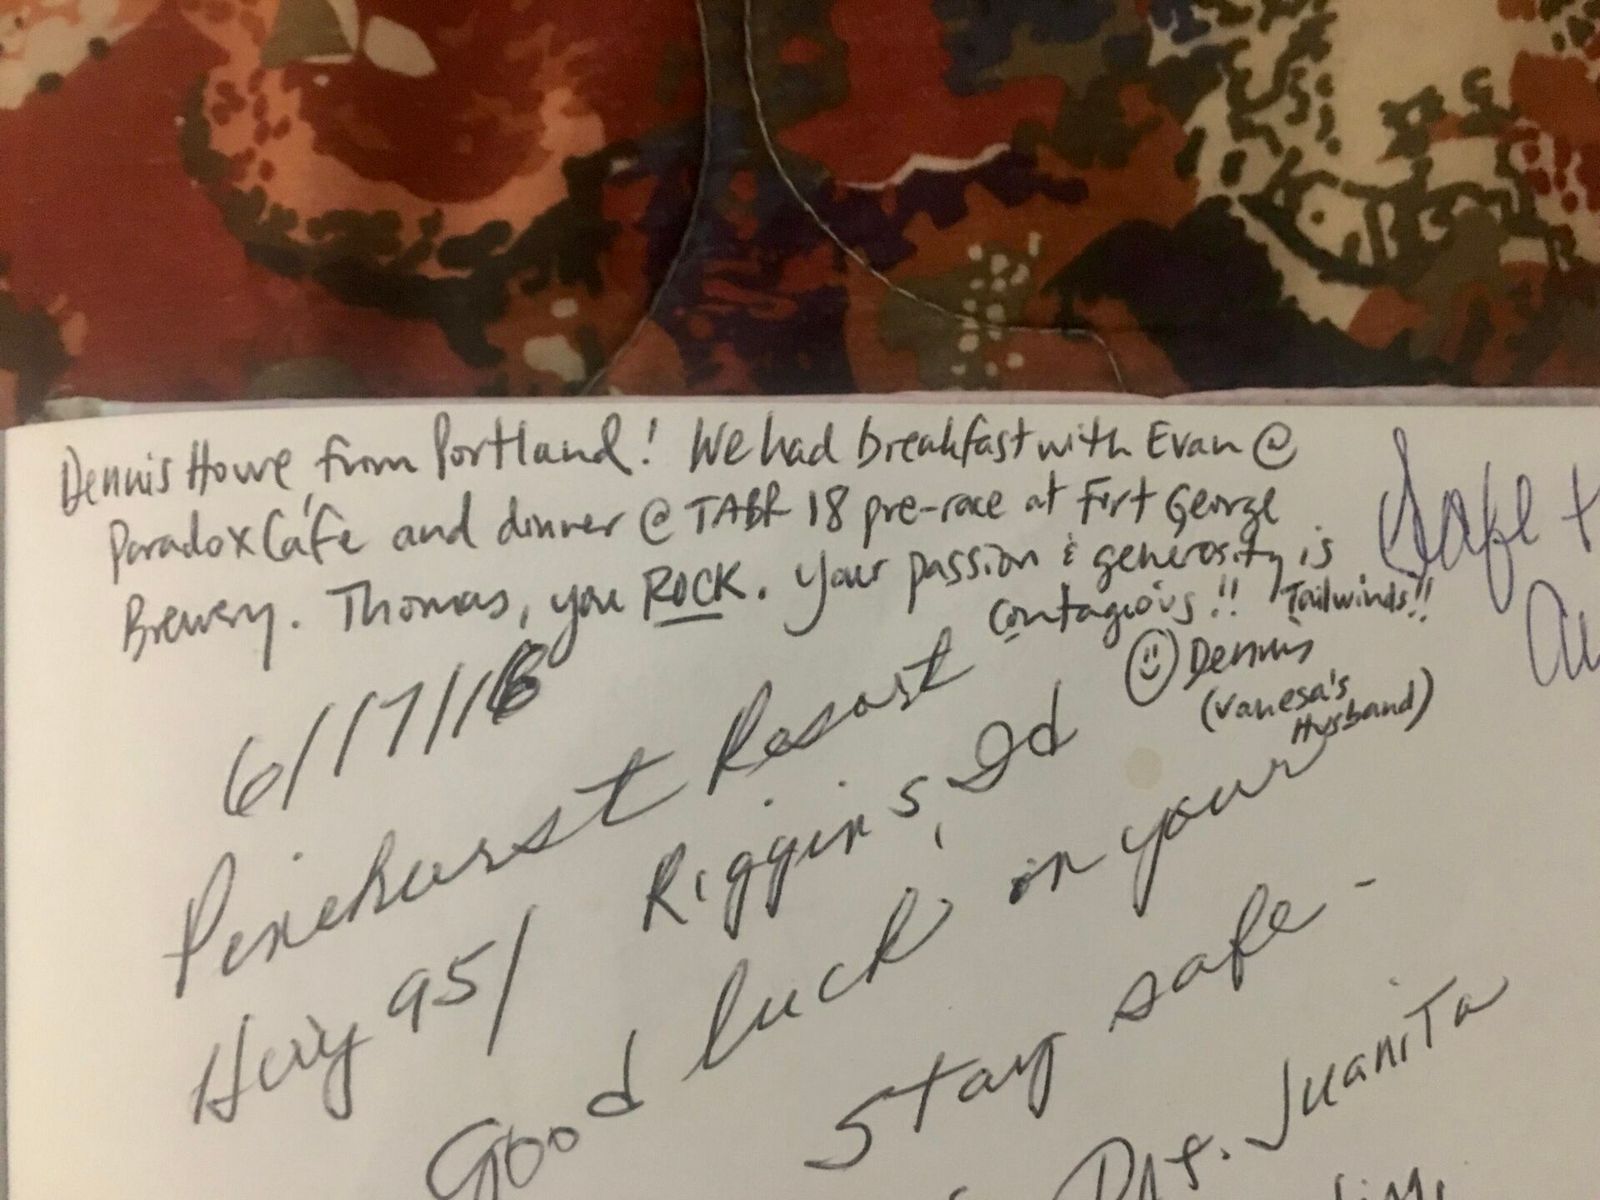 Dennis Howe from Portland! We had breakfast with Evan @
Paradox Café and dinner @ TABR 18 pre-race at Fort George
Brewery. Thomas, you ROCK. Your passion & generosity is
contagious!! Tailwinds!!
☺ Dennis
(Vanesa's
Husband)
6/17/18
Pinehurst Resort
Hwy 95/ Riggins, Id
Good luck on your
Stay safe -
Juanita
Safe +